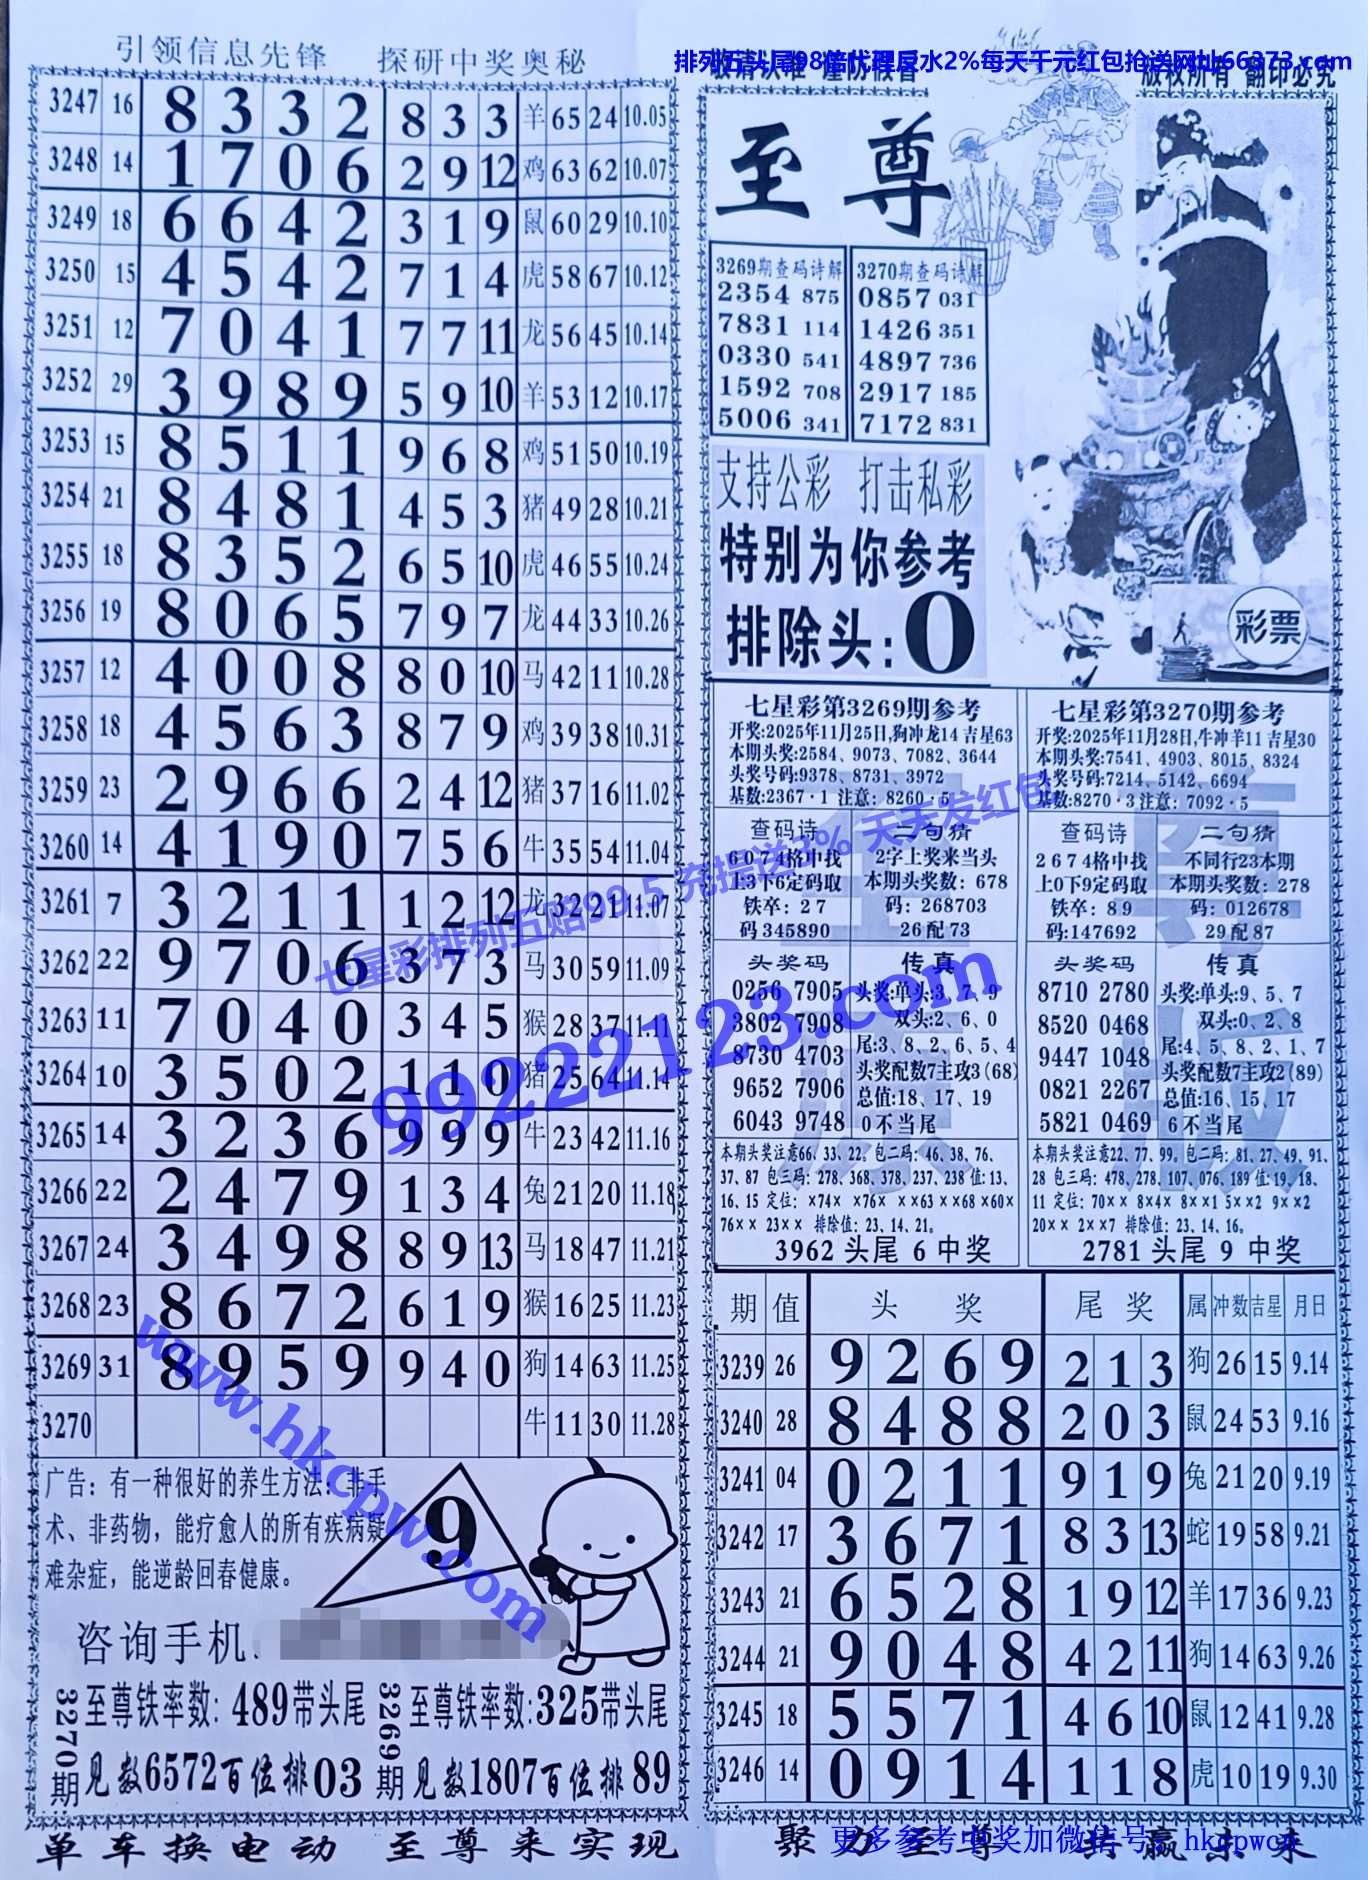 引领信息先锋 探研中奖奥秘
排列五头尾98倍代理反水2%每天千元红包抢送网址66373.com
3247 16 8 3 3 2 8 3 3 羊 65 24 10.05
3248 14 1 7 0 6 2 9 12 鸡 63 62 10.07
3249 18 6 6 4 2 3 1 9 鼠 60 29 10.10
3250 15 4 5 4 2 7 1 4 虎 58 67 10.12
3251 12 7 0 4 1 7 7 11 龙 56 45 10.14
3252 29 3 9 8 9 5 9 10 羊 53 12 10.17
3253 15 8 5 1 1 9 6 8 鸡 51 50 10.19
3254 21 8 4 8 1 4 5 3 猪 49 28 10.21
3255 18 8 3 5 2 6 5 10 虎 46 55 10.24
3256 19 8 0 6 5 7 9 7 龙 44 33 10.26
3257 12 4 0 0 8 8 0 10 马 42 11 10.28
3258 18 4 5 6 3 8 7 9 鸡 39 38 10.31
3259 23 2 9 6 6 2 4 12 猪 37 16 11.02
3260 14 4 1 9 0 7 5 6 牛 35 54 11.04
3261 7 3 2 1 1 1 2 12 龙 32 21 11.07
3262 22 9 7 0 6 3 7 3 马 30 59 11.09
3263 11 7 0 4 0 3 4 5 猴 28 37 11.11
3264 10 3 5 0 2 1 1 0 猪 25 64 11.14
3265 14 3 2 3 6 9 9 9 牛 23 42 11.16
3266 22 2 4 7 9 1 3 4 兔 21 20 11.18
3267 24 3 4 9 8 8 9 13 马 18 47 11.21
3268 23 8 6 7 2 6 1 9 猴 16 25 11.23
3269 31 8 9 5 9 9 4 0 狗 14 63 11.25
3270 牛 11 30 11.28
广告：有一种很好的养生方法：非手
术、非药物，能疗愈人的所有疾病疑
难杂症，能逆龄回春健康。
9
咨询手机
3270期 至尊铁率数：489带头尾
见数6572百位排03
3269期 至尊铁率数:325带头尾
见数1807百位排89
单车换电动 至尊来实现
敬请认准 谨防假冒
版权所有 翻印必究
至尊
3269期查码诗解
2354 875
7831 114
0330 541
1592 708
5006 341
3270期查码诗解
0857 031
1426 351
4897 736
2917 185
7172 831
支持公彩 打击私彩
特别为你参考
排除头:0
彩票
七星彩第3269期参考
开奖:2025年11月25日,狗冲龙14 吉星63
本期头奖:2584、9073、7082、3644
头奖号码:9378、8731、3972
基数:2367·1 注意：8260·5
查码诗
6074格中找
上3下6定码取
铁卒：27
码345890
二句猜
2字上奖来当头
本期头奖数：678
码：268703
26配73
头奖码
0256 7905
3802 7908
8730 4703
9652 7906
6043 9748
传真
头奖:单头:3、7、9
双头:2、6、0
尾:3、8、2、6、5、4
头奖配数7主攻3(68)
总值:18、17、19
0不当尾
本期头奖注意66、33、22。包二码：46、38、76、
37、87 包三码：278、368、378、237、238 值:13、
16、15 定位：×74× ×76× ××63 ××68 ×60×
76×× 23×× 排除值：23、14、21。
3962 头尾 6 中奖
七星彩第3270期参考
开奖:2025年11月28日,牛冲羊11 吉星30
本期头奖:7541、4903、8015、8324
头奖号码:7214、5142、6694
基数:8270·3 注意：7092·5
查码诗
2674格中找
上0下9定码取
铁卒：89
码:147692
二句猜
不同行23本期
本期头奖数：278
码：012678
29配87
头奖码
8710 2780
8520 0468
9447 1048
0821 2267
5821 0469
传真
头奖:单头:9、5、7
双头:0、2、8
尾:4、5、8、2、1、7
头奖配数7主攻2(89)
总值:16、15、17
6不当尾
本期头奖注意22、77、99。包二码：81、27、49、91、
28 包三码：478、278、107、076、189 值:19、18、
11 定位：70×× 8×4× 8××1 5××2 9××2
20×× 2××7 排除值：23、14、16。
2781 头尾 9 中奖
至尊原版
期 值 头奖 尾奖 属 冲数 吉星 月日
3239 26 9 2 6 9 2 1 3 狗 26 15 9.14
3240 28 8 4 8 8 2 0 3 鼠 24 53 9.16
3241 04 0 2 1 1 9 1 9 兔 21 20 9.19
3242 17 3 6 7 1 8 3 13 蛇 19 58 9.21
3243 21 6 5 2 8 1 9 12 羊 17 36 9.23
3244 21 9 0 4 8 4 2 11 狗 14 63 9.26
3245 18 5 5 7 1 4 6 10 鼠 12 41 9.28
3246 14 0 9 1 4 1 1 8 虎 10 19 9.30
聚力至尊 共赢未来
更多参考中奖加微信号：hkcpwcp
七星彩排列五赔99.5 充提送3% 天天发红包
99222123.com
www.hkcpw.com